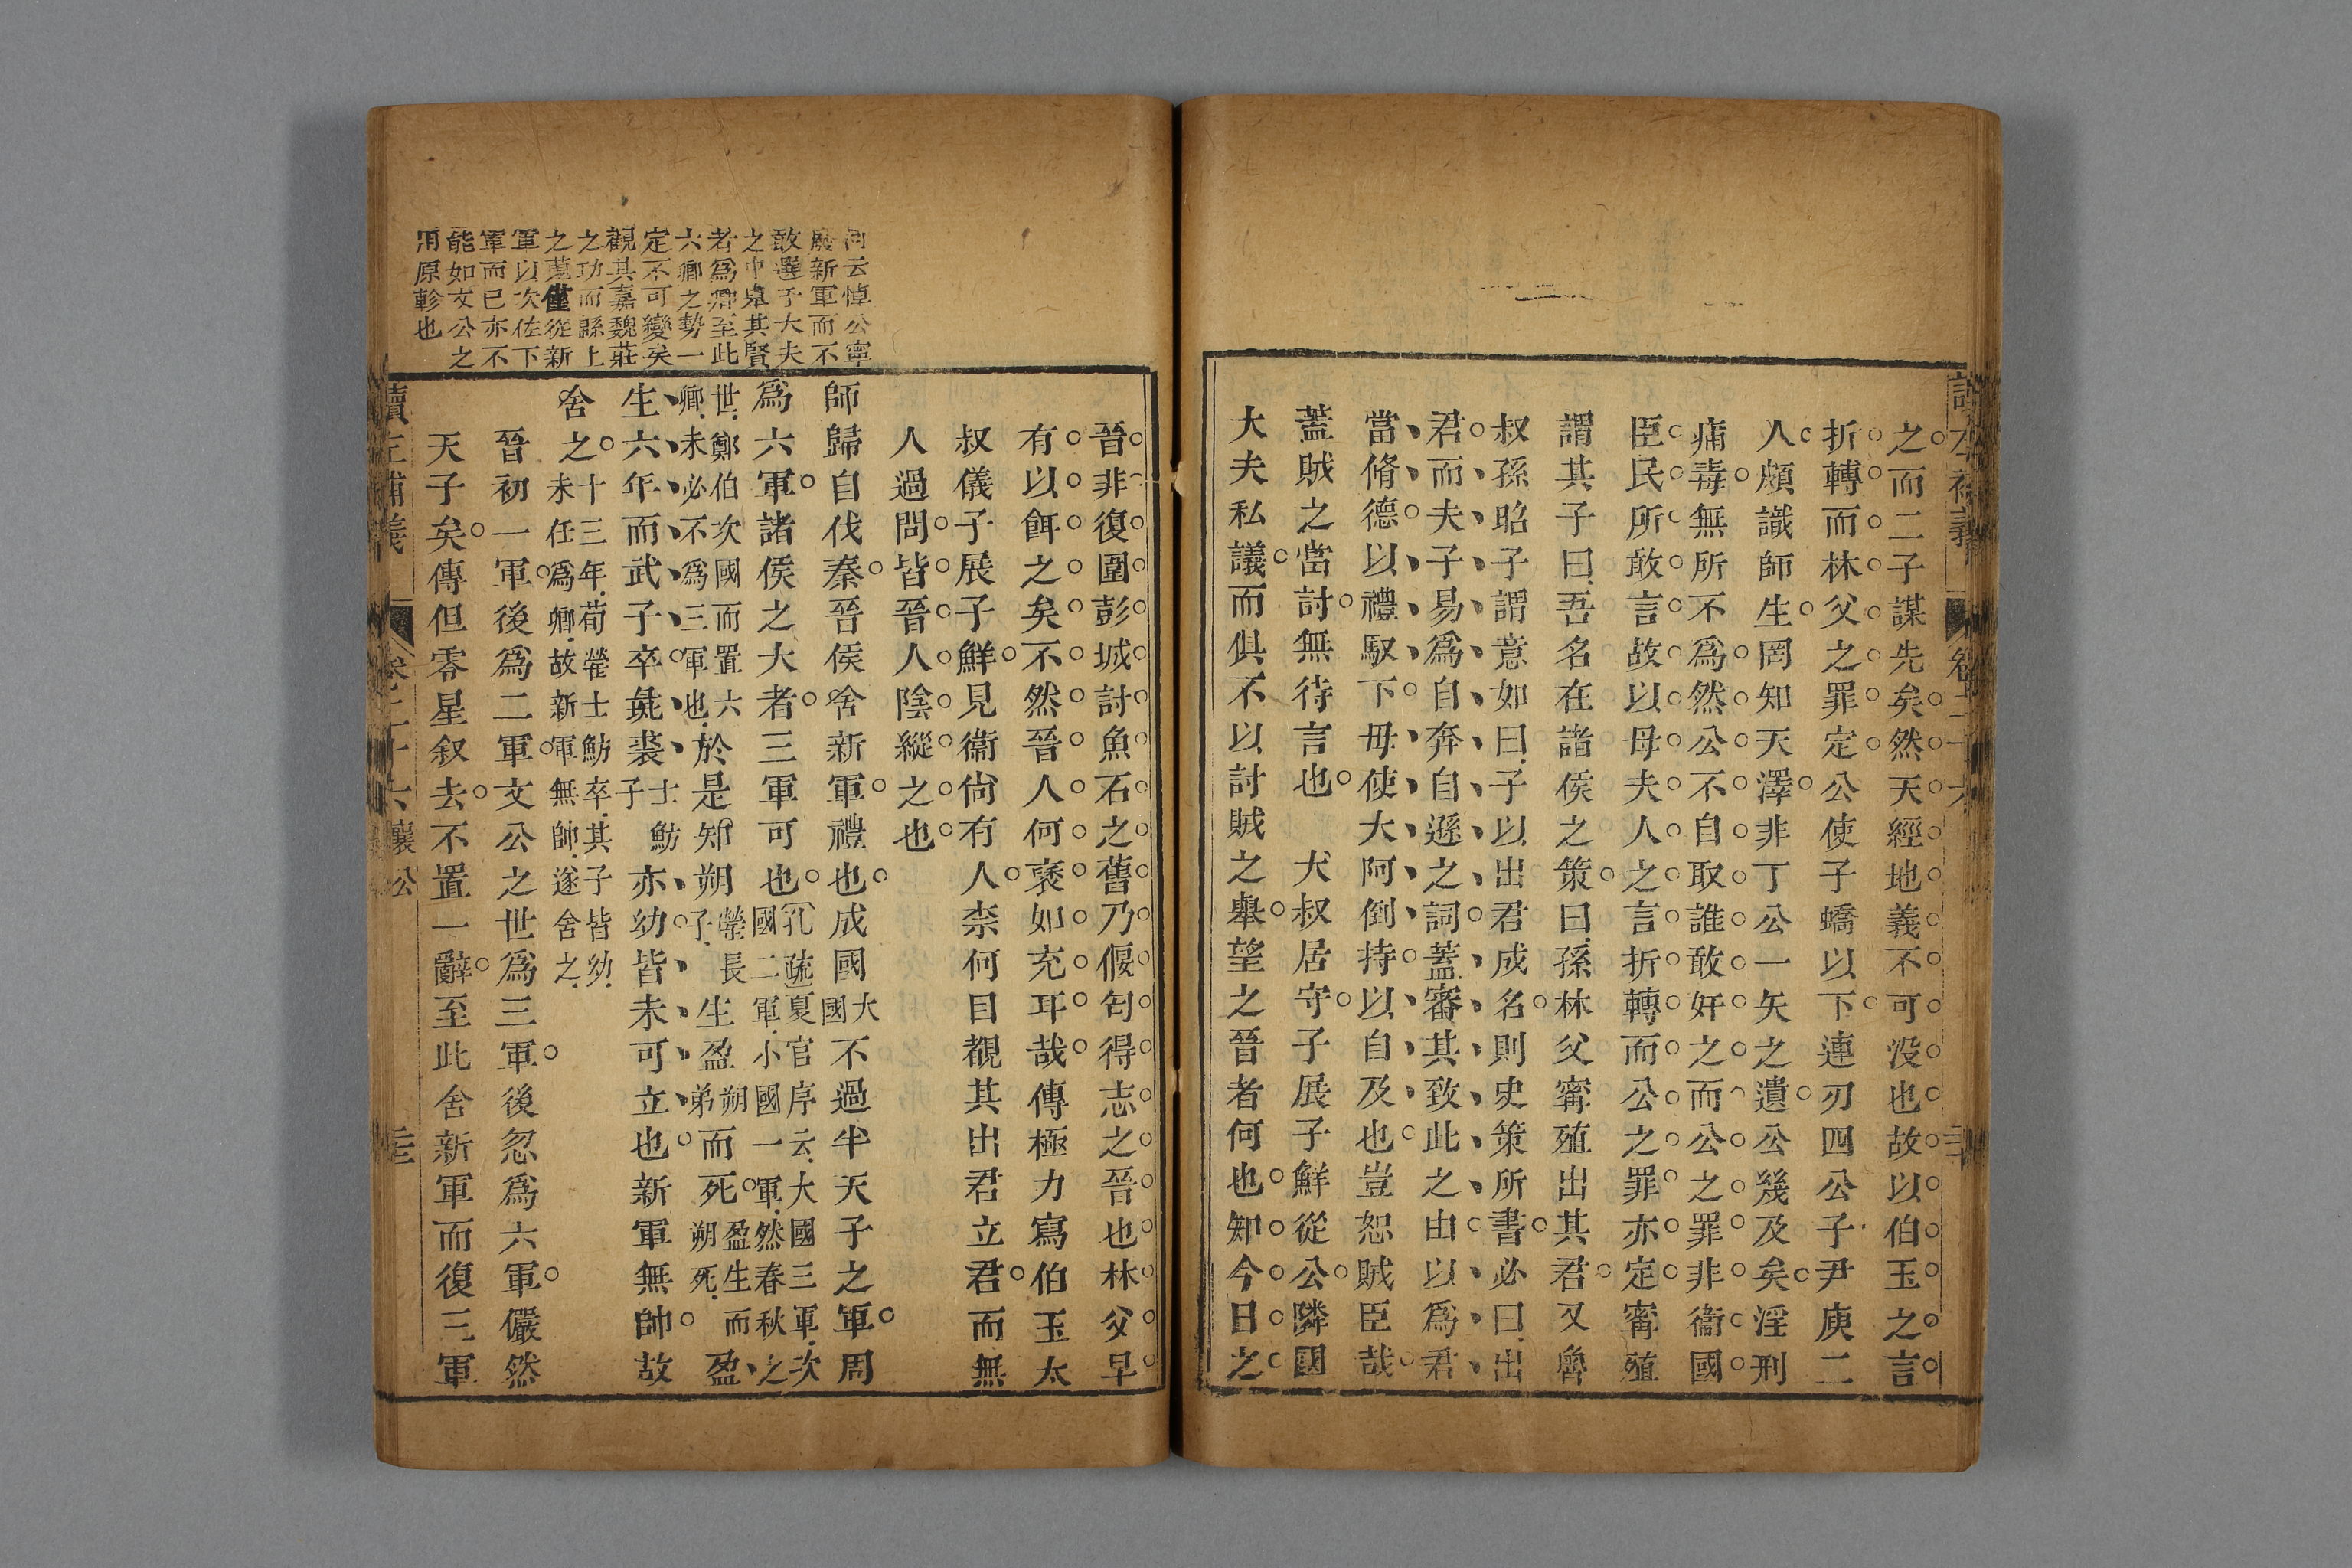 之而二子謀先矣然天經地義不可没也故以伯玉之言
折轉而林父之罪定公使子蟜以下連刃四公子尹庾二
人頗識師生罔知天澤非丁公一矢之遺公幾及矣淫刑
痡毒無所不為然公不自取誰敢奸之而公之罪非衞國
臣民所敢言故以母夫人之言折轉而公之罪亦定甯殖
謂其子曰吾名在諸侯之策曰孫林父甯殖出其君又魯
叔孫昭子謂意如曰子以出君成名則史策所書必曰出
君而夫子易為自奔自遜之詞蓋審其致此之由以為君
當脩德以禮馭下毋使大阿倒持以自及也豈恕賊臣哉
蓋賊之當討無待言也 犬叔居守子展子鮮從公隣國
大夫私議而俱不以討賊之舉望之晉者何也知今日之
晉非復圍彭城討魚石之舊乃偃匄得志之晉也林父早
有以餌之矣不然晉人何褎如充耳哉傳極力寫伯玉太
叔儀子展子鮮見衞尙有人柰何目覩其出君立君而無
人過問皆晉人陰縱之也
師歸自伐秦晉侯舍新軍禮也成國大國不過半天子之軍周
為六軍諸侯之大者三軍可也孔疏夏官序云大國三軍次國二軍小國一軍然春秋之
世鄭伯次國而置六卿未必不為三軍也於是知朔罃長子生盈朔弟而死盈生而朔死盈
生六年而武子卒彘裘士魴子亦幼皆未可立也新軍無帥故
舍之十三年荀罃士魴卒其子皆幼未任為卿故新軍無帥遂舍之
晉初一軍後為二軍文公之世為三軍後忽為六軍儼然
天子矣傳但零星叙去不置一辭至此舍新軍而復三軍
云悼公寧
廢新軍而不
敢選于大夫
之中㮣其賢
者為卿至此
六卿之勢一
定不可變矣
觀其嘉魏莊
之功而緜上
之蒐僅從新
軍以次佐下
軍而已亦不
能如文公之
用原軫也
讀左補義 卷二十六 襄公